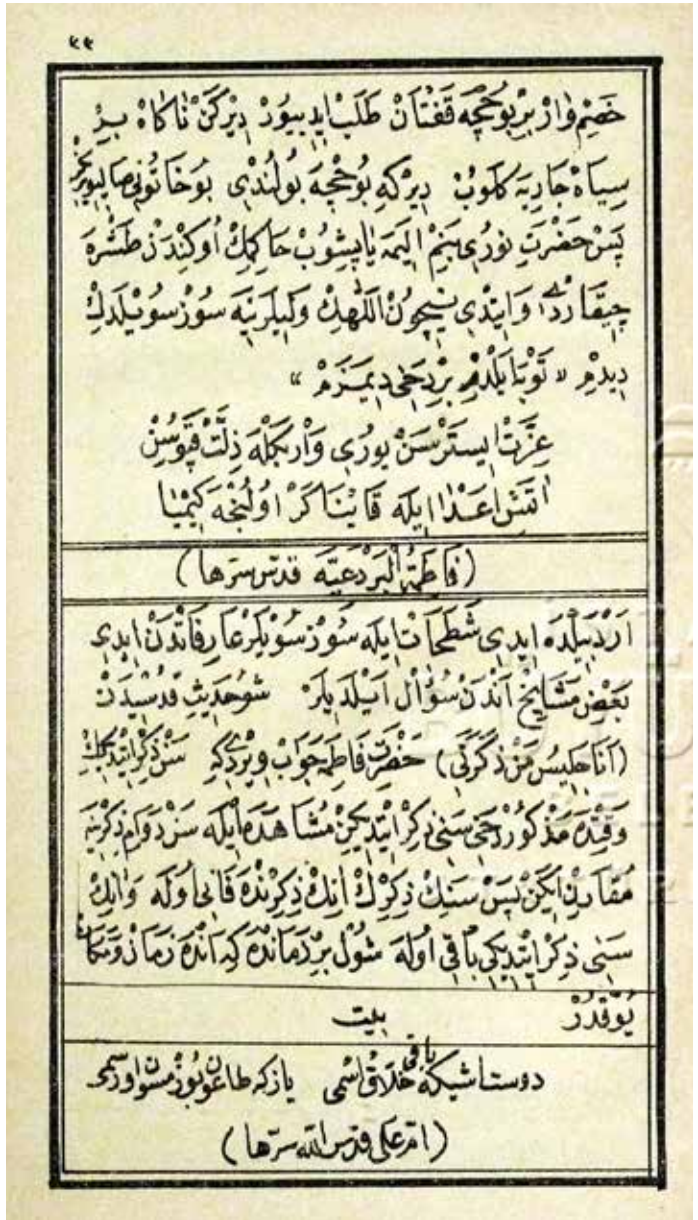 ٤٩
خصم وار بر بوحچه قفتان طلب ايديیور ديركن ناكاه بر
سياه جاريه كلوب ديركه بوحچه بولندى بو خاتونى صاليويرك
پس حضرت نورى بنم اليمه ياپيشوب حاكمك اوكندن طشره
چيقاردى وايتدى نيچون اللهك وليلرينه سوز سويلدك
ديدم « توبه ايلدم بر دخى ديمزم »
عزت ايسترسن يورى وار بكله ذلت قپوسن
آتش اعدا ايله قاينا كر اولنجه كيميا
(فاطمة البردعيه قدس سرها)
اردبيلده ايدى شطحات ايله سوز سويلر عارفاتدن ايدى
بعض مشايخ آندن سؤال ايلديلر شو حديث قدسيدن
(انا جليس من ذكرنى) حضرت فاطمه جواب ويردى كه سن ذكر ايتديكك
وقتده مذكور دخى سنى ذكر ايتديكن مشاهده ايله سن دوام ذكرينه
مقارن ايكن پس سنك ذكرك انك ذكرنده فانى اوله وانك
سنى ذكر ايتديكى باقى اوله شول بر زمانده كه انده زمان ومكان
يوقدر بيت
دوستا شيكه باقى خلاق اسمى يازكه طاغون بوزمسون اورسمى
(ام على قدس الله سرها)